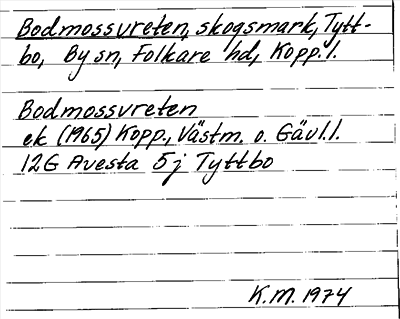 Bodmossvreten, skogsmark, Tytt-
bo, By sn, Folkare hd, Kopp. l.
Bodmossvreten
ek (1965) Kopp., Västm. o. Gävl. l.
12G Avesta 5j Tyttbo
K.M. 1974